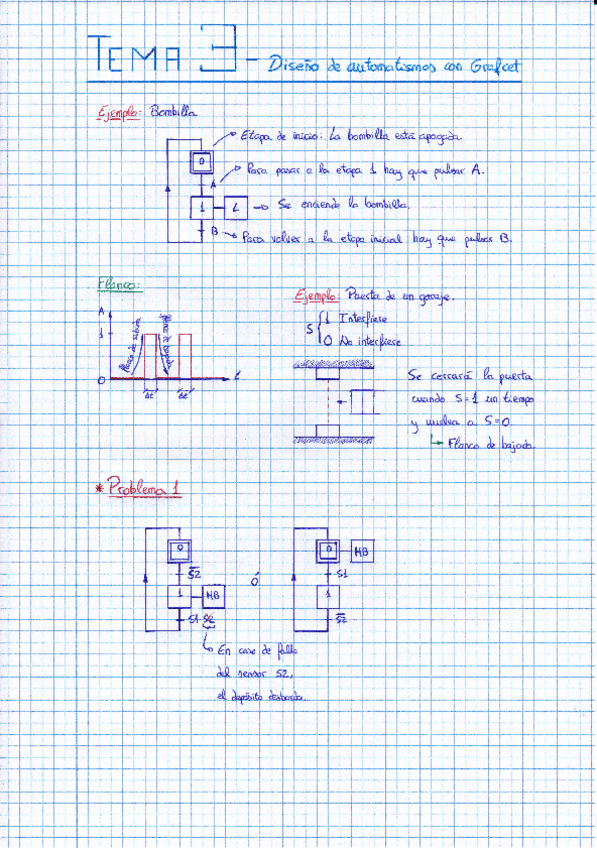 TEMA 3 - Diseño de automatismos con Grafcet
Ejemplo: Bombilla
Etapa de inicio: La bombilla está apagada.
0
A
Para pasar a la etapa 1 hay que pulsar A.
1 L Se enciende la bombilla.
B Para volver a la etapa inicial hay que pulsar B.
Flanco:
A
1
0
t
Flanco de subida
Flanco de bajada
Δt Δt
Ejemplo: Puerta de un garaje.
S { 1 Interfiere
0 No interfiere
Se cerrará la puerta
cuando S=1 un tiempo
y vuelva a S=0.
Flanco de bajada.
* Problema 1
0
S2
1 MB
S1·S2
ó
0 MB
S1
1
S2
En caso de fallo
del sensor S2,
el depósito desborda.